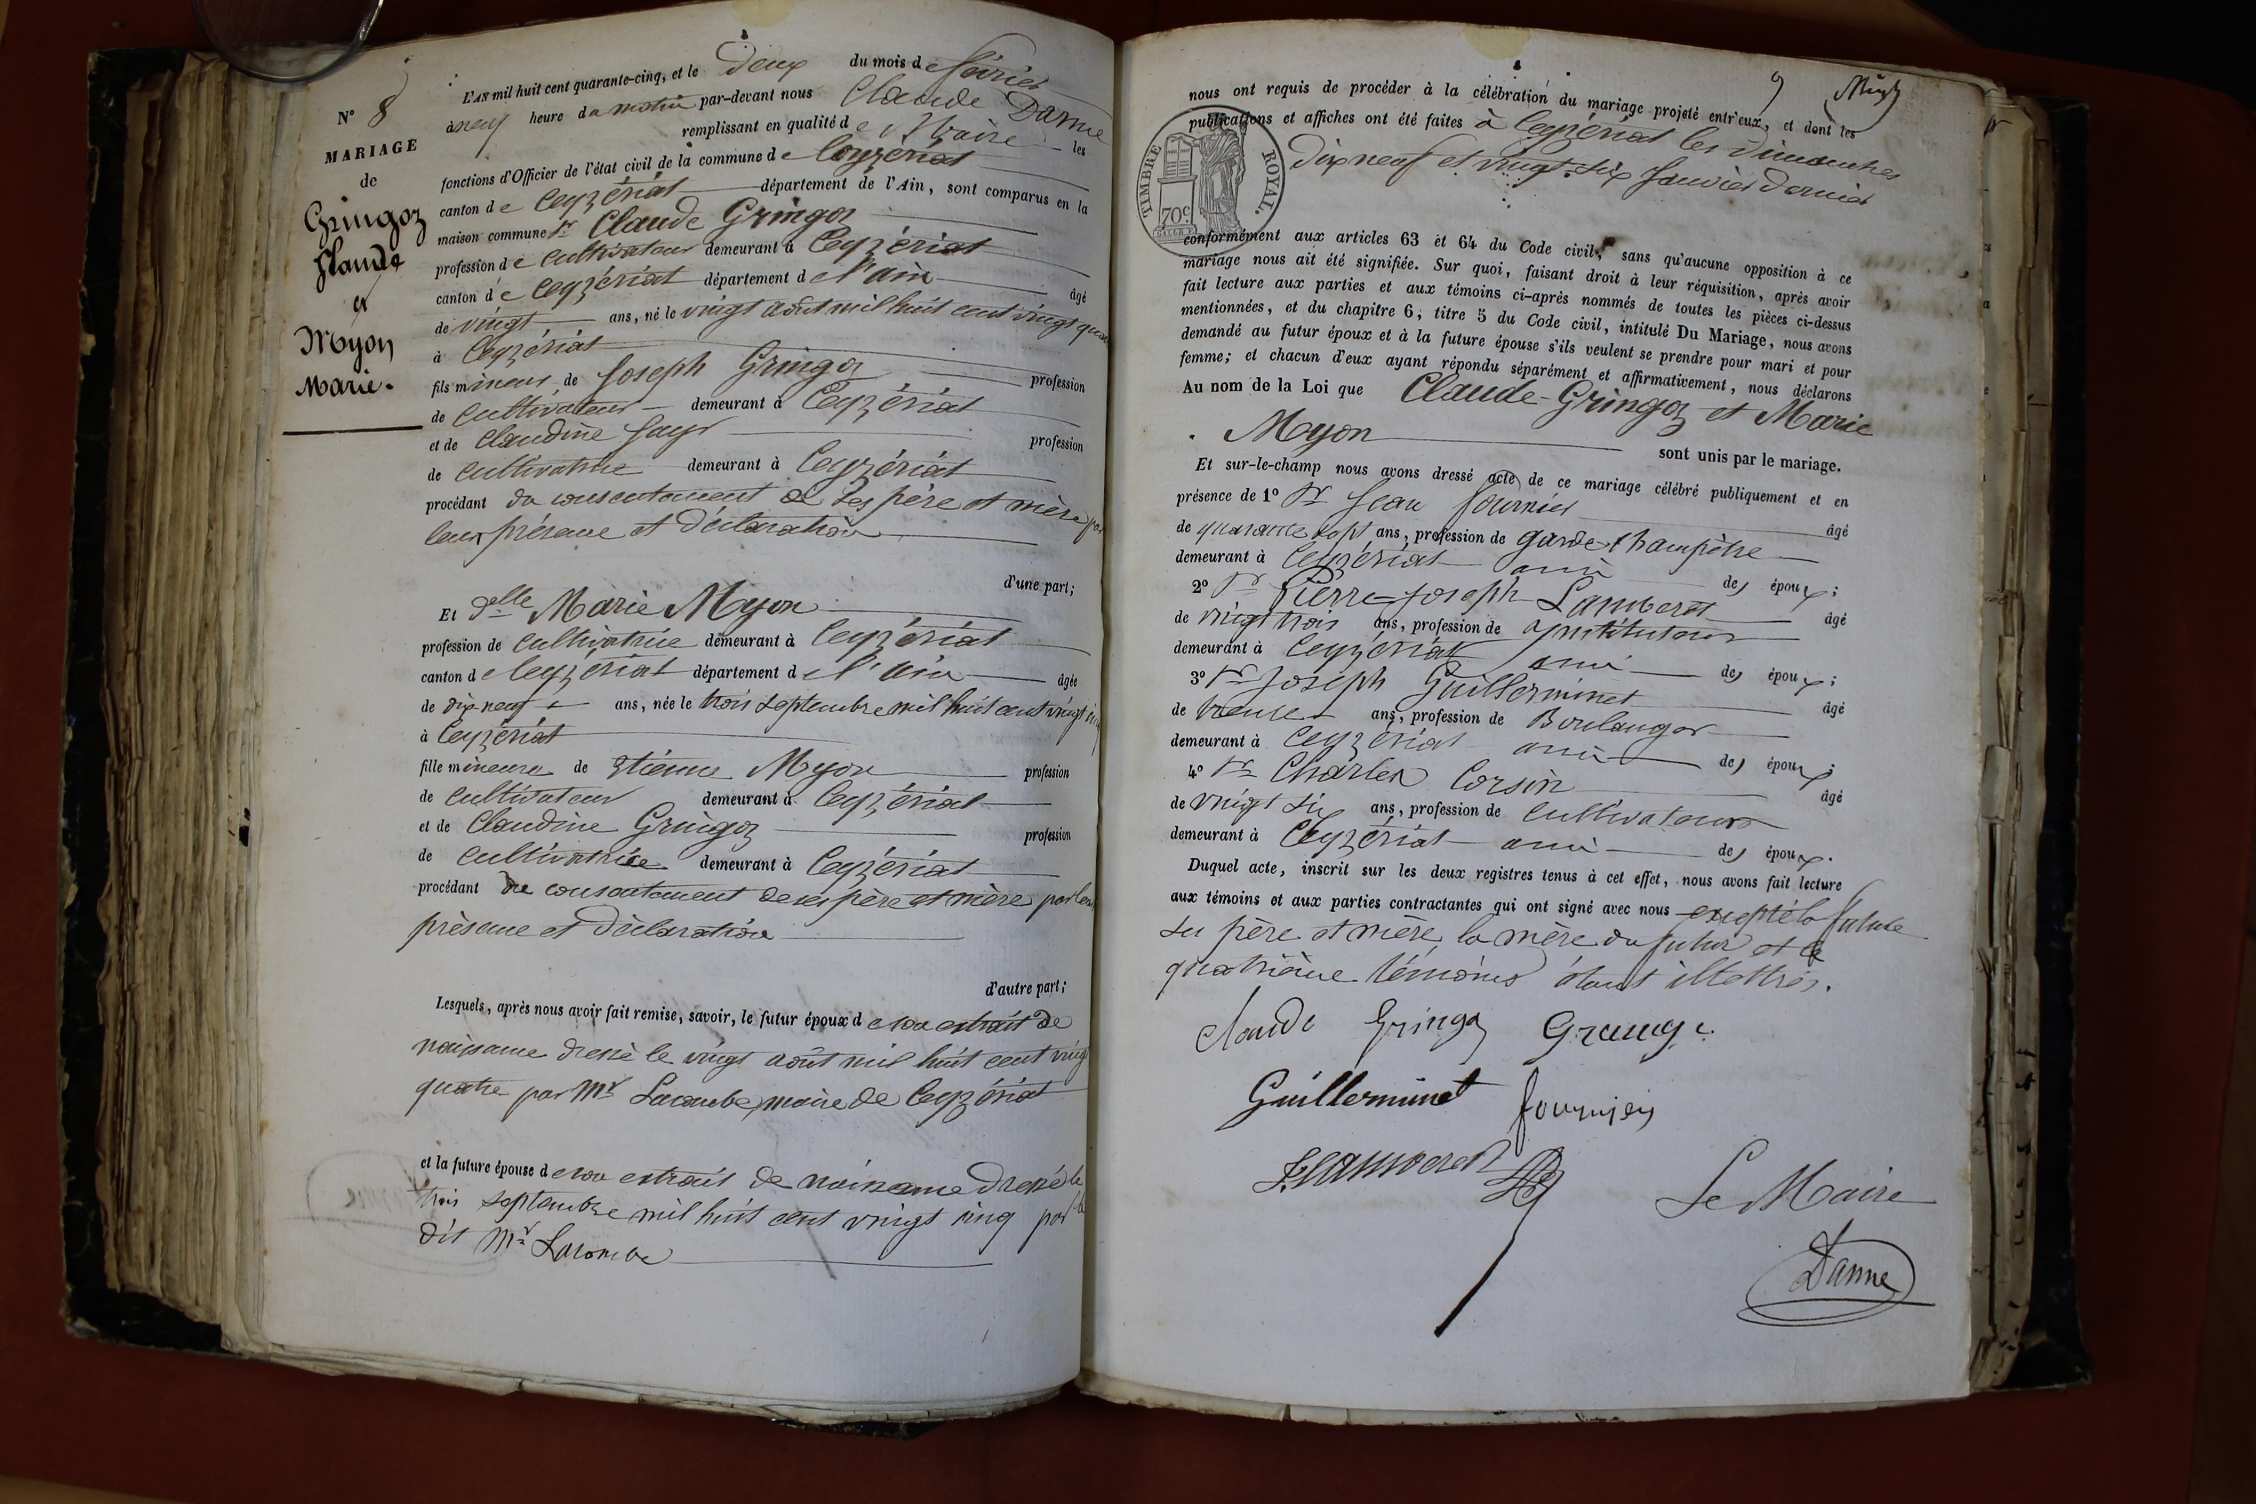 N° 8
MARIAGE
de
Gringoz
Claude
et
Myon
Marie.
L'AN mil huit cent quarante-cinq, et le deux du mois de février
à neuf heure du matin par-devant nous Claude Danne
remplissant en qualité de Maire les
fonctions d'Officier de l'état civil de la commune de Ceyzériat
canton de Ceyzériat département de l'Ain, sont comparus en la
maison commune Sr Claude Gringoz
profession de cultivateur demeurant à Ceyzériat
canton de Ceyzériat département de l'ain âgé
de vingt ans, né le vingt août mil huit cent vingt quatre
à Ceyzériat
fils mineur de Joseph Gringoz profession
de cultivateur demeurant à Ceyzériat
et de Claudine profession
de cultivatrice demeurant à Ceyzériat
procédant du consentement de ses père et mère par
leur présence et déclaration
d'une part;
Et Delle Marie Myon
profession de cultivatrice demeurant à Ceyzériat
canton de Ceyzériat département de l'ain âgée
de dix neuf ans, née le trois septembre mil huit cent vingt cinq
à Ceyzériat
fille mineure de Etienne Myon profession
de cultivateur demeurant à Ceyzériat
et de Claudine Gringoz profession
de cultivatrice demeurant à Ceyzériat
procédant du consentement de ses père et mère par leur
présence et déclaration
d'autre part;
Lesquels, après nous avoir fait remise, savoir, le futur époux de son extrait de
naissance dressé le vingt août mil huit cent vingt
quatre par Mr Lacombe, maire de Ceyzériat
et la future épouse de son extrait de naissance dressé le
trois septembre mil huit cent vingt cinq par le
dit Mr Lacombe
9
nous ont requis de procéder à la célébration du mariage projeté entr'eux, et dont les
publications et affiches ont été faites à Ceyzériat les dimanches
dix neuf et vingt six Janvier dernier
TIMBRE ROYAL.
70c.
conformément aux articles 63 et 64 du Code civil, sans qu'aucune opposition à ce
mariage nous ait été signifiée. Sur quoi, faisant droit à leur réquisition, après avoir
fait lecture aux parties et aux témoins ci-après nommés de toutes les pièces ci-dessus
mentionnées, et du chapitre 6, titre 5 du Code civil, intitulé Du Mariage, nous avons
demandé au futur époux et à la future épouse s'ils veulent se prendre pour mari et pour
femme; et chacun d'eux ayant répondu séparément et affirmativement, nous déclarons
Au nom de la Loi que Claude Gringoz et Marie
Myon sont unis par le mariage.
Et sur-le-champ nous avons dressé acte de ce mariage célébré publiquement et en
présence de 1° Sr Jean Fournier âgé
de quarante sept ans, profession de garde champêtre
demeurant à Ceyzériat ami des époux;
2° Sr Pierre Joseph Lamberet âgé
de vingt trois ans, profession de Instituteur
demeurant à Ceyzériat ami des époux;
3° Sr Joseph Guillerminet âgé
de trente ans, profession de Boulanger
demeurant à Ceyzériat ami des époux;
4° Sr Charles Corsin âgé
de vingt six ans, profession de cultivateur
demeurant à Ceyzériat ami des époux.
Duquel acte, inscrit sur les deux registres tenus à cet effet, nous avons fait lecture
aux témoins et aux parties contractantes qui ont signé avec nous excepté la future
ses père et mère, la mère du futur et le
quatrième témoins étant illettrés.
Claude Gringoz
Guillerminet fournier
Lamberet
Le Maire
Danne